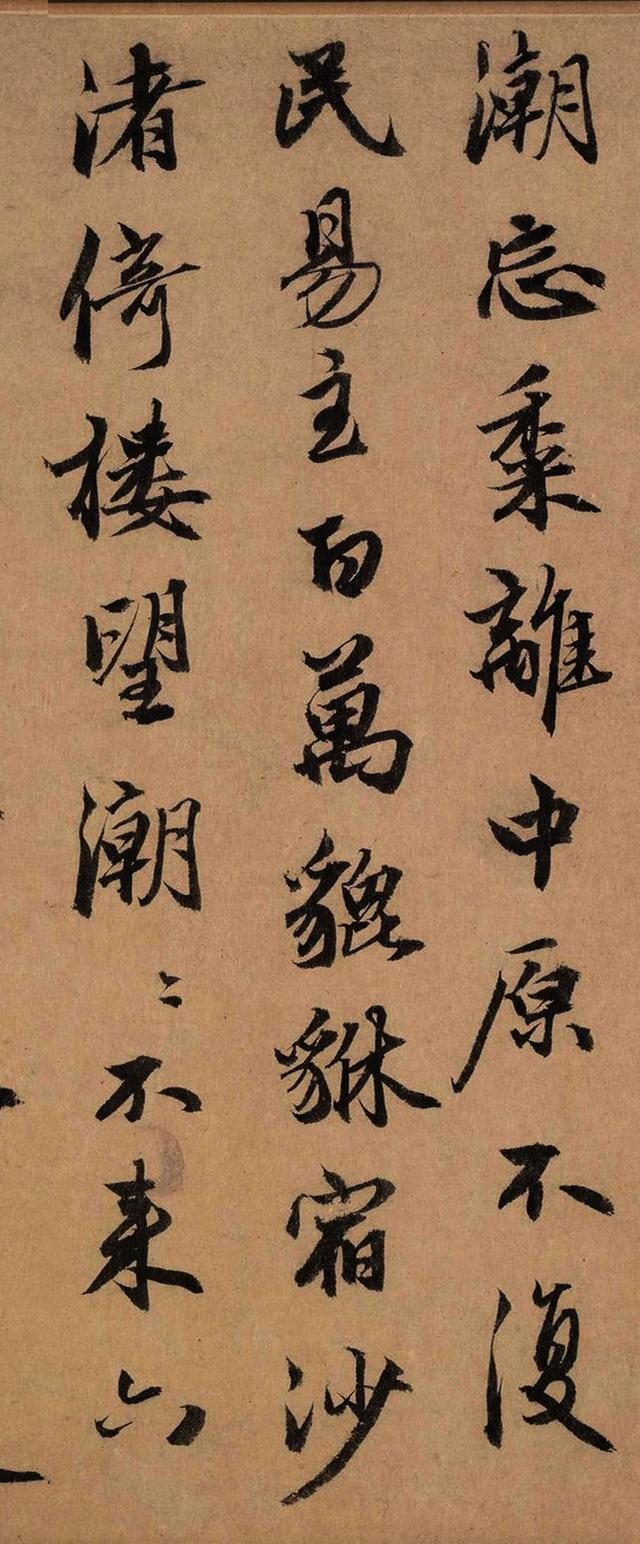 潮忘黍離中原不復
民易主百萬貔貅宿沙
渚倚樓望潮〻不來六